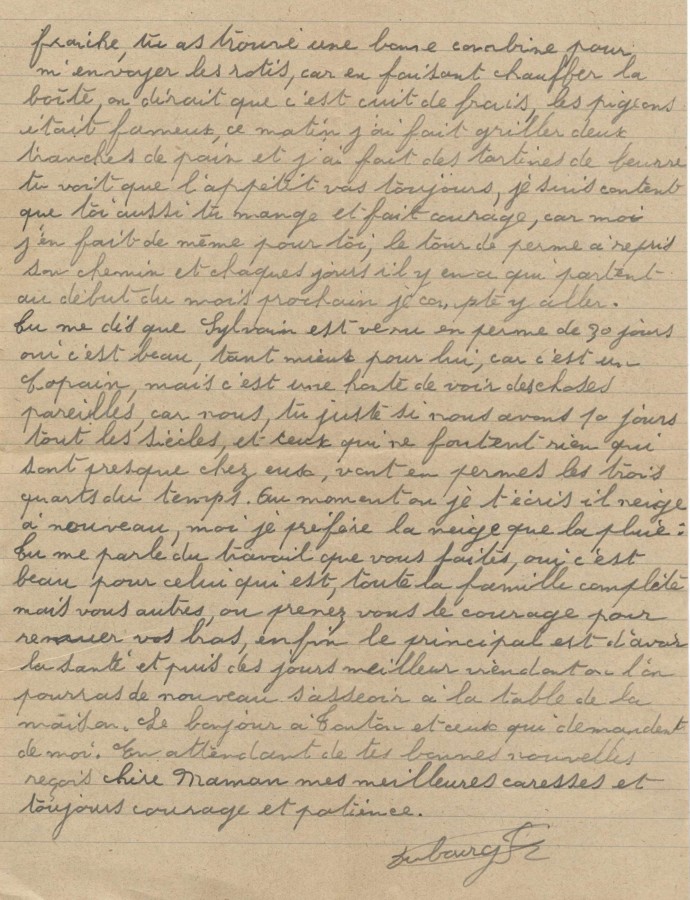 fraiche, tu as trouvé une bonne combine pour
m'envoyer les rotis, car en faisant chauffer la
boîte, on dirait que c'est cuit de frais, les pigeons
était fameux, ce matin j'ai fait griller deux
tranches de pain et j'ai fait des tartines de beurre
tu voit que l'appétit vas toujours, je suis content
que toi aussi tu mange et fait courage, car moi
j'en fait de même pour toi, le tour de perme a repris
son chemin et chaques jours il y en a qui partent
au début du mois prochain je compte y aller.
Tu me dis que Sylvain est venu en perme de 30 jours
oui c'est beau, tant mieux pour lui, car c'est un
Copain, mais c'est une honte de voir des choses
pareilles, car nous, tu juste si nous avons 10 jours
tout les siècles, et ceux qui ne foutent rien qui
sont presque chez eux, vont en permes les trois
quarts du temps. Au moment ou je t'écris il neige
a nouveau, moi je préfère la neige que la pluie.
Tu me parle du travail que vous faites, oui c'est
beau pour celui qui est, toute la famille complète
mais vous autres, ou prenez vous le courage pour
remuer vos bras, enfin le principal est d'avoir
la santé et puis des jours meilleur viendont ou l'on
pourras de nouveau s'asseoir a la table de la
maison. Le bonjour a Tonton et ceux qui demandent
de moi. En attendant de tes bonnes nouvelles
reçois chère Maman mes meilleures caresses et
toujours courage et patience.
Dubourg